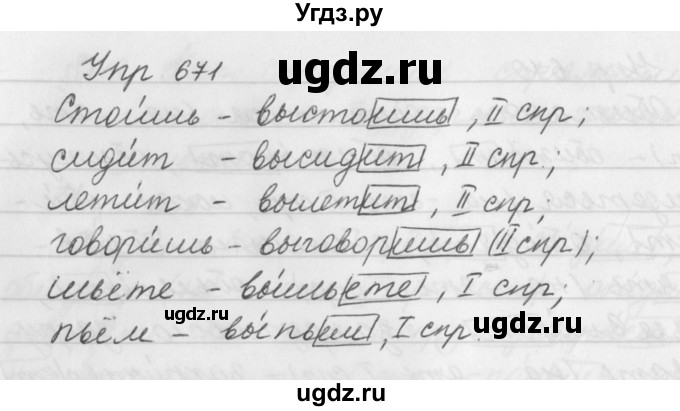 Угдз.ру
Упр 671
ugdz.ru
Стои́шь - выстоишь, II спр;
сиди́т - высидит, II спр.;
лети́т - вылетит, II спр;
говори́шь - выговоришь (II спр);
шьёте - вы́шьете, I спр;
ugdz.ru
пьём - вы́пьем, I спр.
ugdz.ru
ugdz.ru